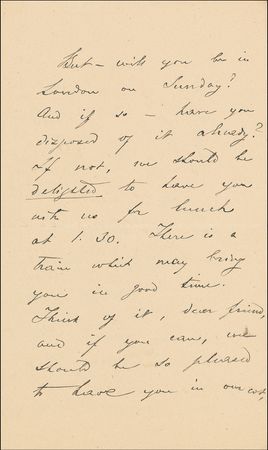 But – will you be in
London on Sunday?
And if so – have you
disposed of it already?
If not, we should be
delighted to have you
with us for lunch
at 1.30. There is a
train which may bring
you in good time.
Think of it, dear friend,
and if you can, we
should be so pleased
to have you in our